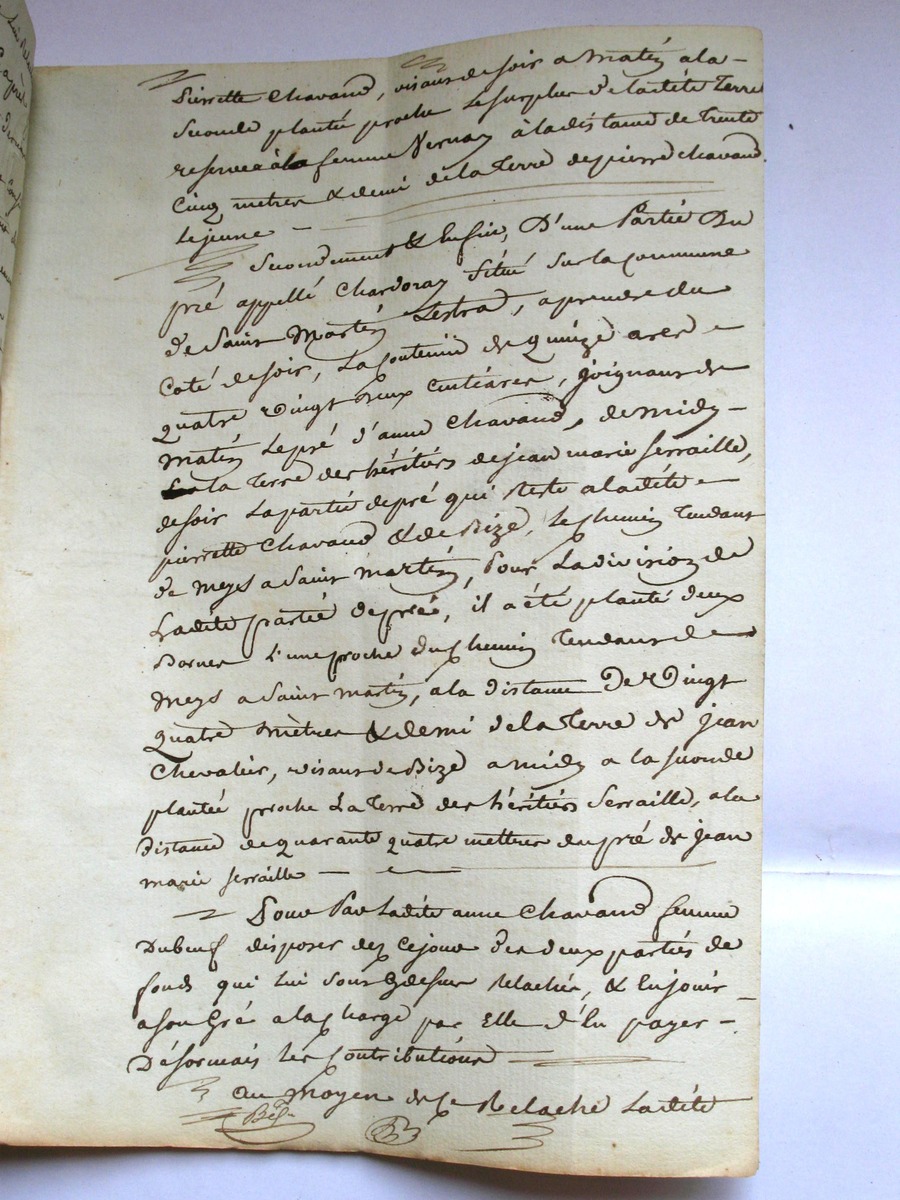 pierrette Chavand, visant de soir a matin a la
seconde planté proche le surplus de ladite Terre
reservée à la femme Vernay à la distance de trente
Cinq metres & demi de la Terre de pierre chavand
lejeune
Secondement & Enfin, D'une Partie Du
pré appellé Chardoray situé sur la commune
de Saint Martin Lestra, a prendre du
Coté de soir, la contenue de quinze ares
quatre vingt deux Centiares, joignant de
matin le pré d'anne Chavand, de midy
la Terre des héritiers de jean marie serraille,
de soir la partie de pré qui reste a ladite
pierrette Chavand & de Bize, le chemin Tendant
de meys a Saint martin, pour la division de
Ladite partie de pré, il a été planté deux
Bornes l'une proche du chemin Tendant de
meys a Saint martin, a la distance De Vingt
quatre mètres & demi de la Terre de jean
Chevalier, visant de Bize a midy a la seconde
plantée proche La Terre des héritiers Serraille, a la
distance de quarante quatre mettres du pré de jean
marie serraille
Pour Par Ladite anne Chavand femme
Dubeuf disposer dez ce jour des deux parties de
fonds qui lui sont relachés, & En jouir
a son Gré a la charge par Elle d'En payer
Désormais les Contributions
au moyen de ce Relache Ladite